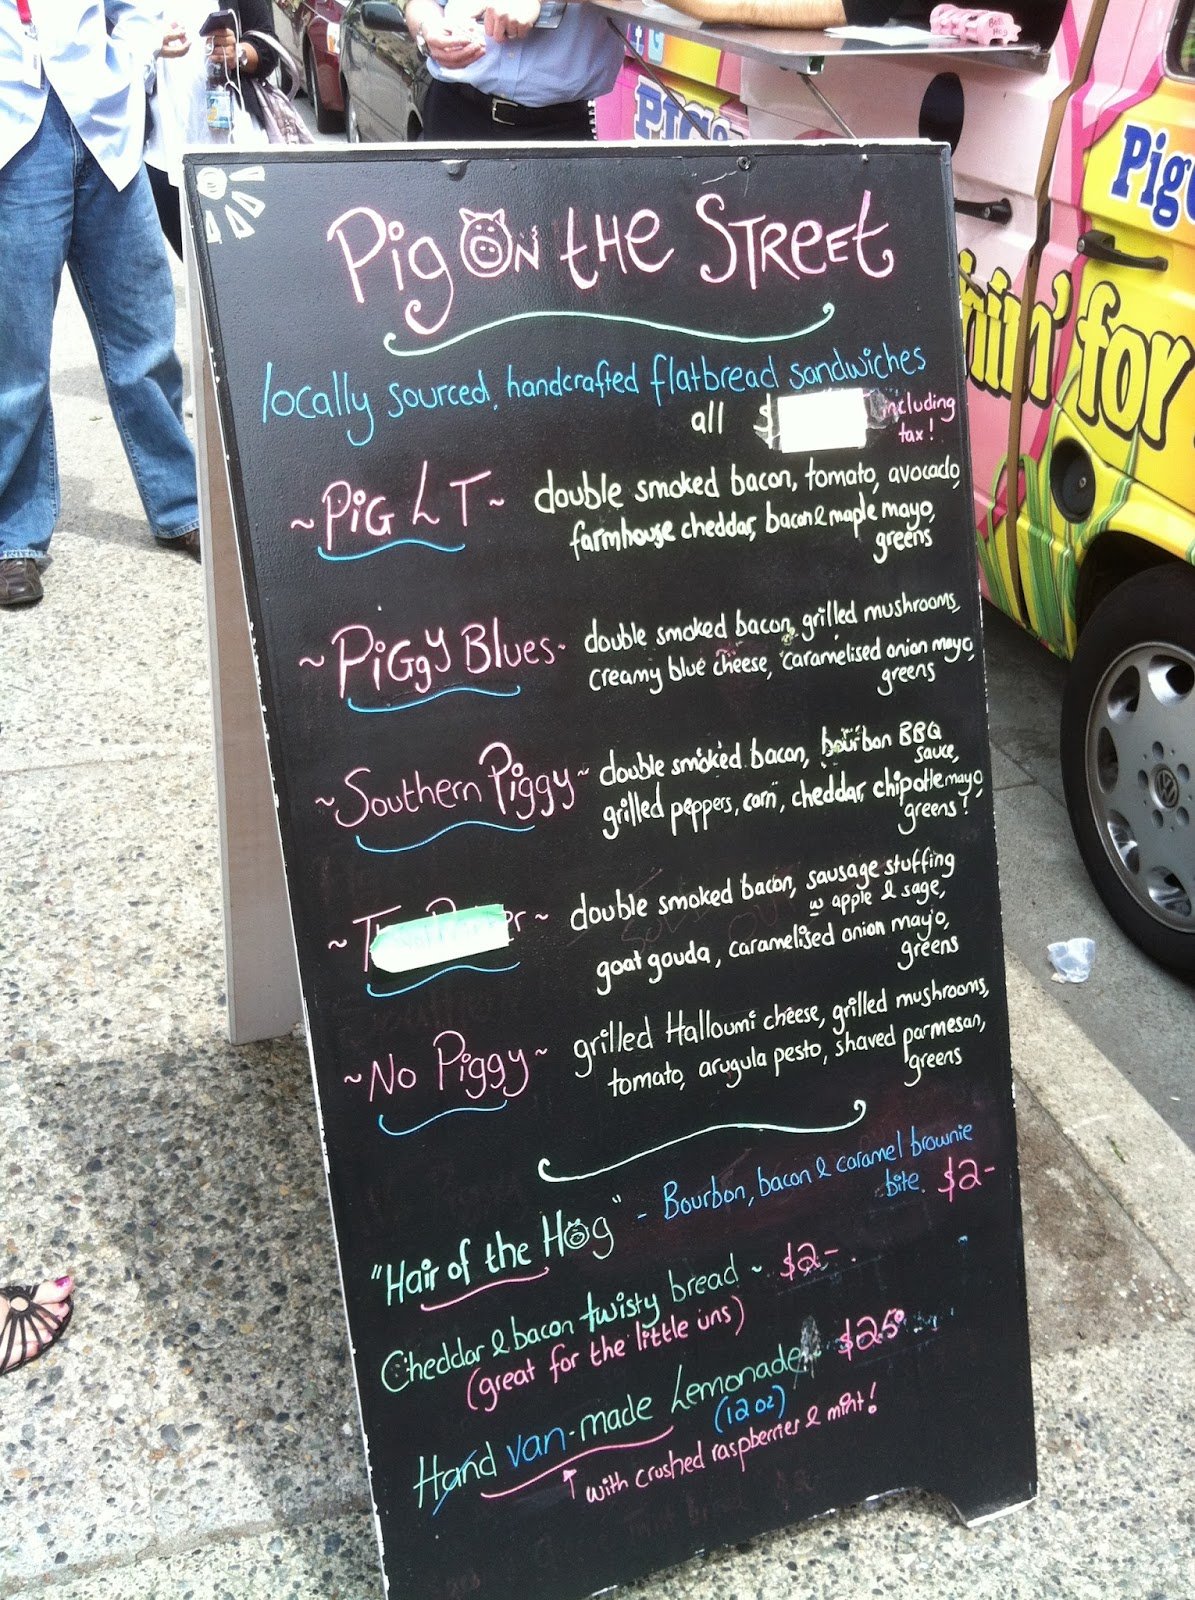 Pig ON the STREET
locally sourced, handcrafted flatbread sandwiches
all $ including
tax!
~PIG LT~ double smoked bacon, tomato, avocado,
farmhouse cheddar, bacon & maple mayo,
greens
~PIGGY BLUES~ double smoked bacon, grilled mushrooms,
creamy blue cheese, caramelised onion mayo,
greens
~Southern Piggy~ double smoked bacon, bourbon BBQ
sauce,
grilled peppers, corn, cheddar, chipotle mayo,
greens!
~ ~ double smoked bacon, sausage stuffing
w apple & sage,
goat gouda, caramelised onion mayo,
greens
~No Piggy~ grilled Halloumi cheese, grilled mushrooms,
tomato, arugula pesto, shaved parmesan,
greens
"Hair of the Hog" - Bourbon, bacon & caramel brownie
bite. $2-
Cheddar & bacon twisty bread ~ $2-
(great for the little uns)
Hand van-made Lemonade $250
(12 oz)
↑ with crushed raspberries & mint!
PIG
Pig
for